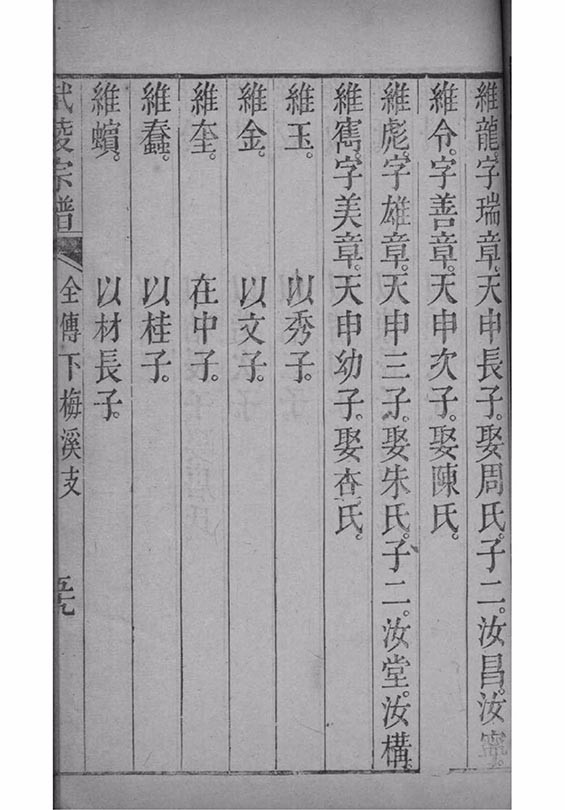 維龍。字瑞章。天申長子。娶周氏。子二。汝昌。汝寧。
維令。字善章。天申次子。娶陳氏。
維彪。字雄章。天申三子。娶朱氏。子二。汝堂。汝構。
維儁。字美章。天申幼子。娶杏氏。
維玉。以秀子。
維金。以文子。
維奎。在中子。
維蠶。以桂子。
維蠙。以材長子。
武陵宗譜 全傳下梅溪支 五九